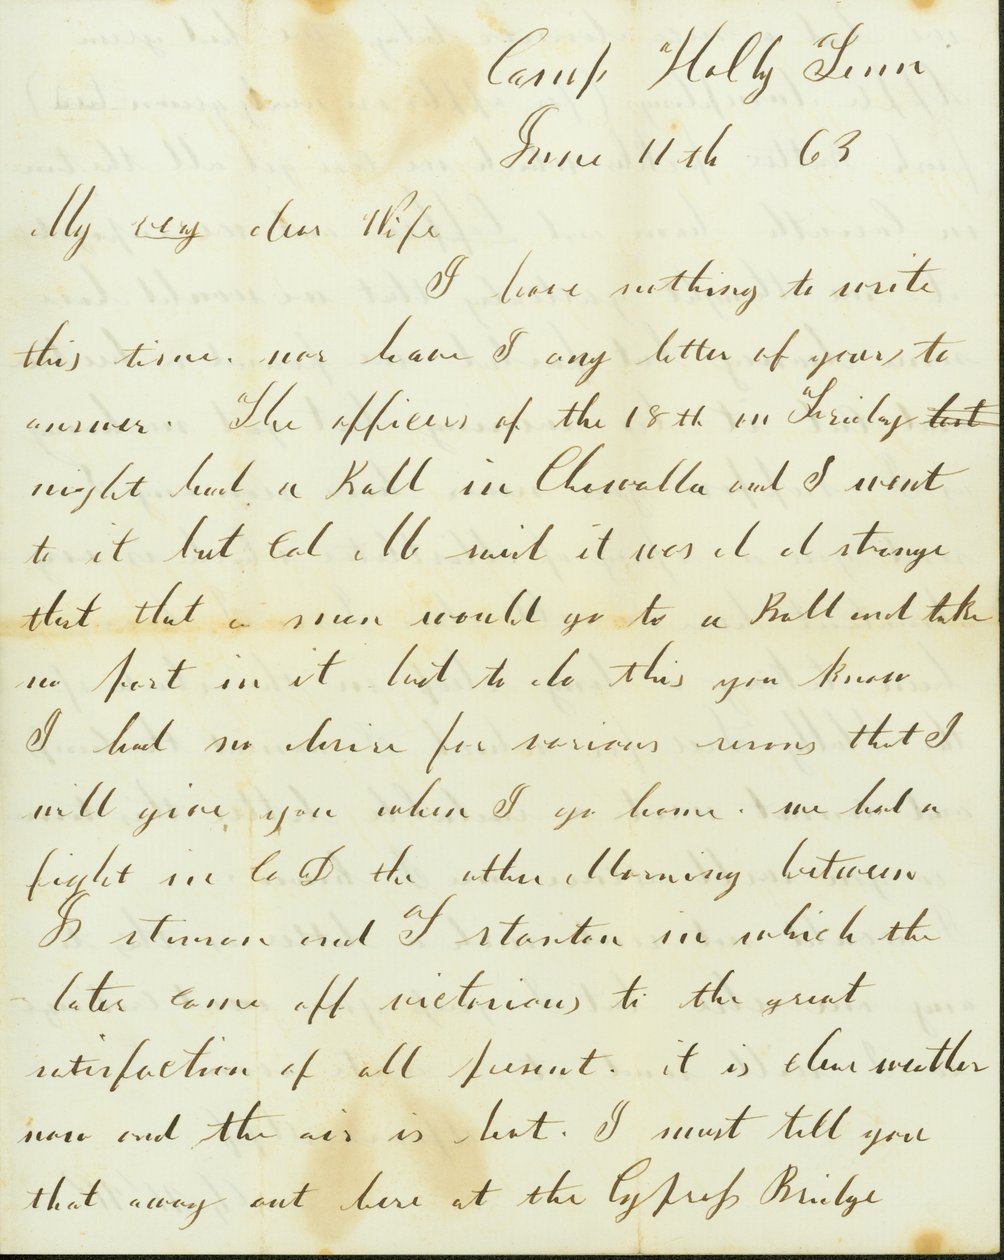 Camp Holly Tenn
June 11th 63
My very dear Wife
I have nothing to write
this time. nor have I any letter of yours to
answer. The officers of the 18th on Friday last
night had a Ball in Chewalla and I went
to it but Col Mc said it was d d strange
that that a man would go to a Ball and take
no part in it but to do this you know
I had no desire for various resons that I
will give you when I go home. we had a
fight in Co D the other Morning between
stimson and T stanton in which the
later came off victorious to the great
satisfaction of all present. it is clear weather
now and the air is hot. I must tell you
that away out here at the Cypress Bridge